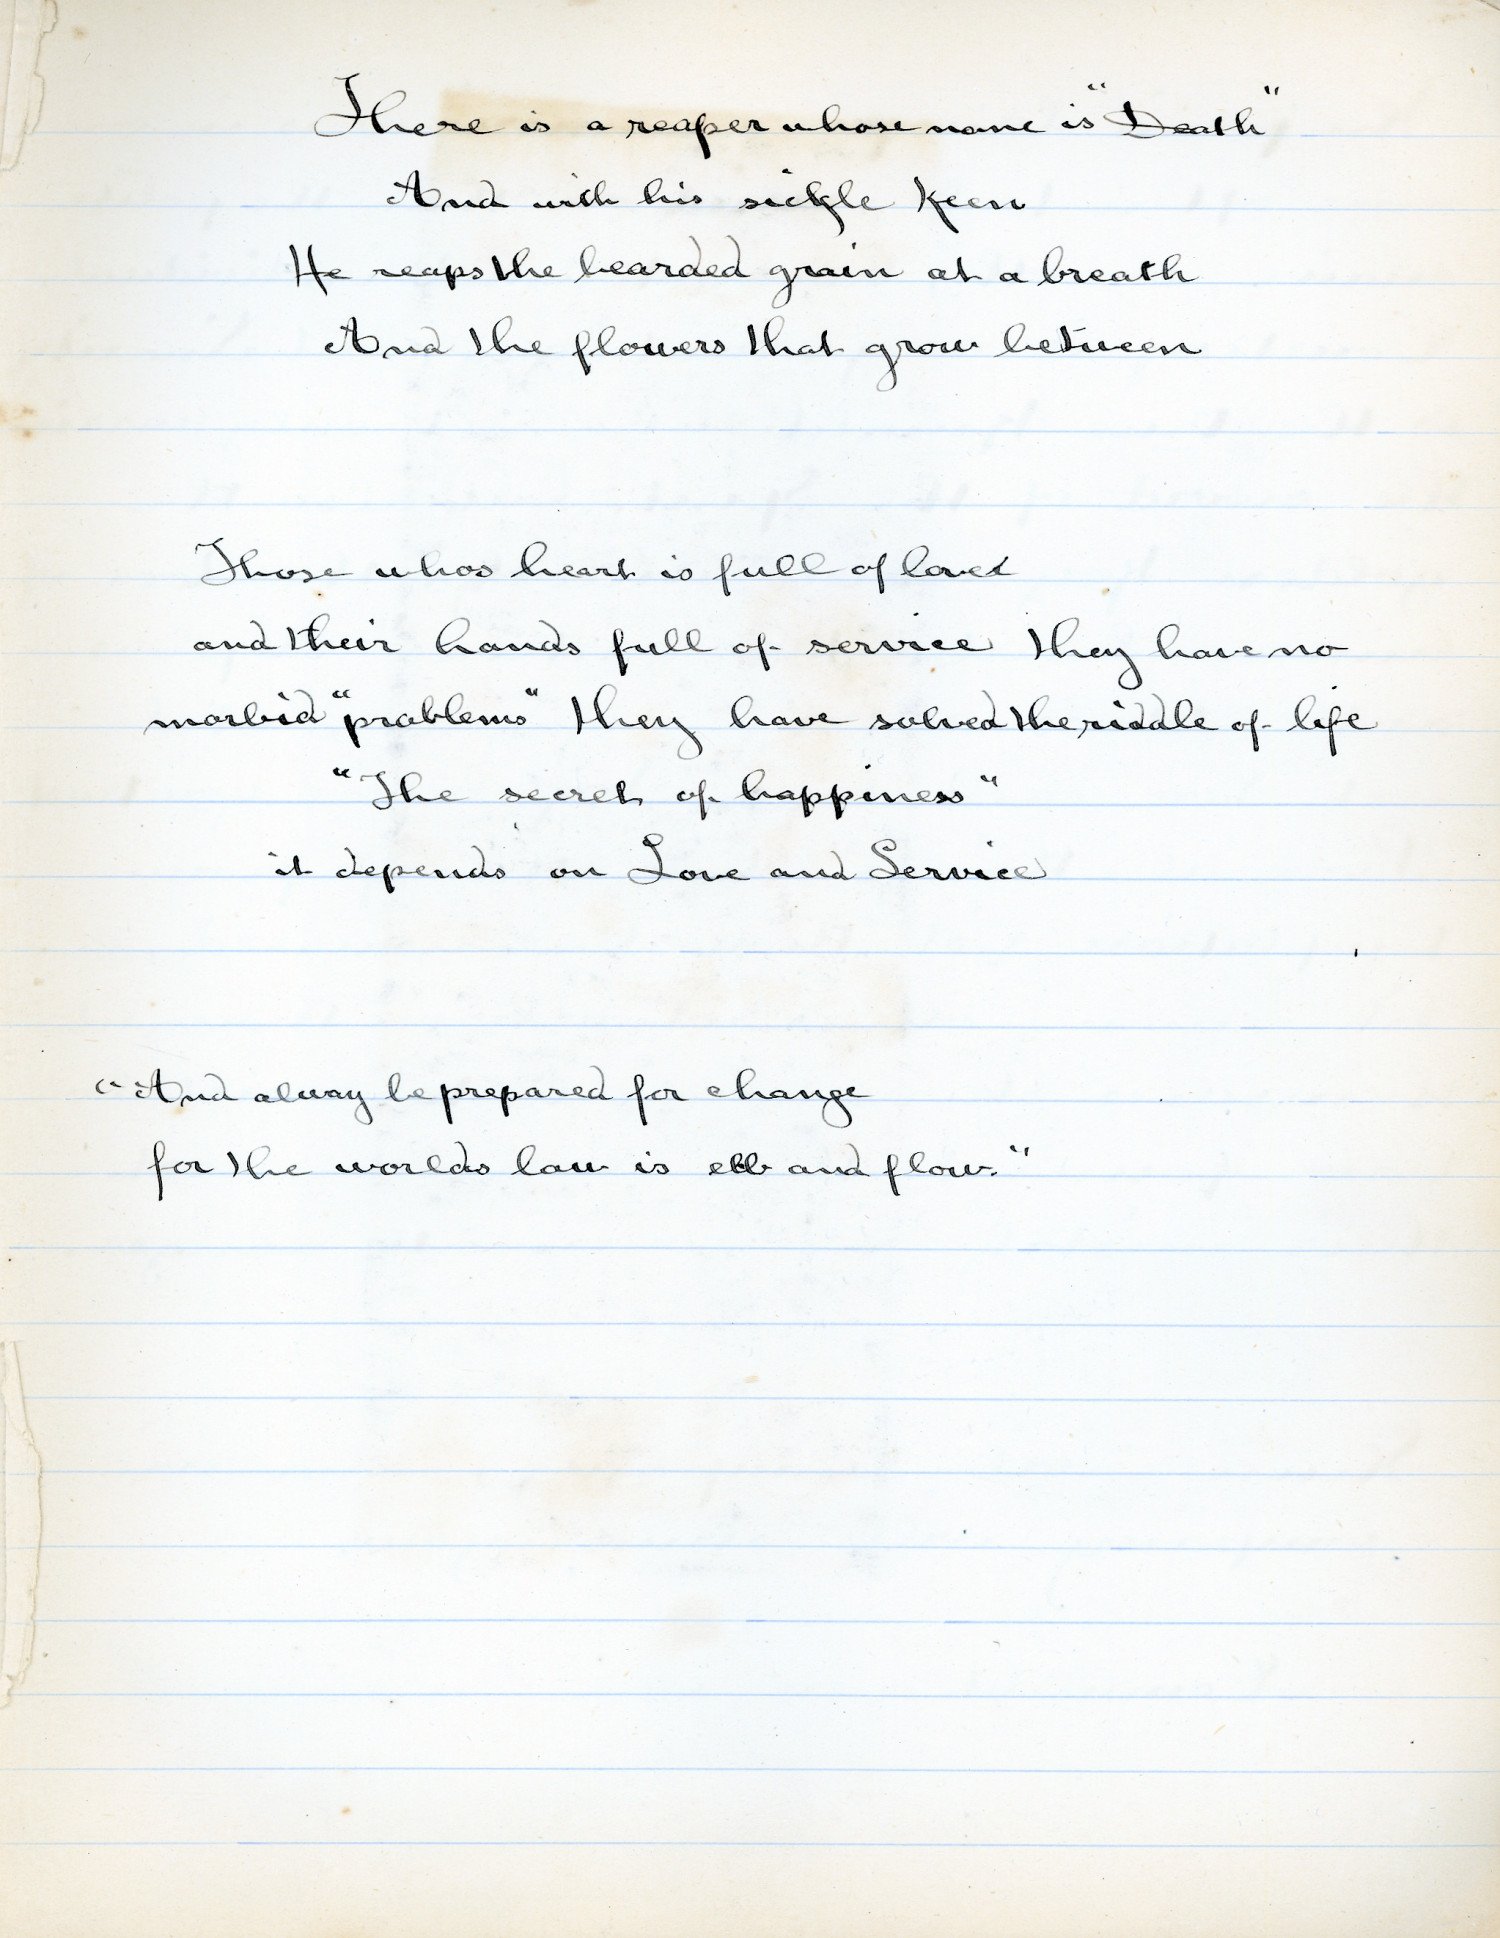 There is a reaper whose name is "Death"
And with his sickle keen
He reaps the bearded grain at a breath
And the flowers that grow between
Those whos heart is full of love
and their hands full of service they have no
morbid "problems" they have solved the riddle of life
"The secret of happiness"
it depends on Love and Service
"And alway be prepared for change
for the worlds law is ebb and flow."